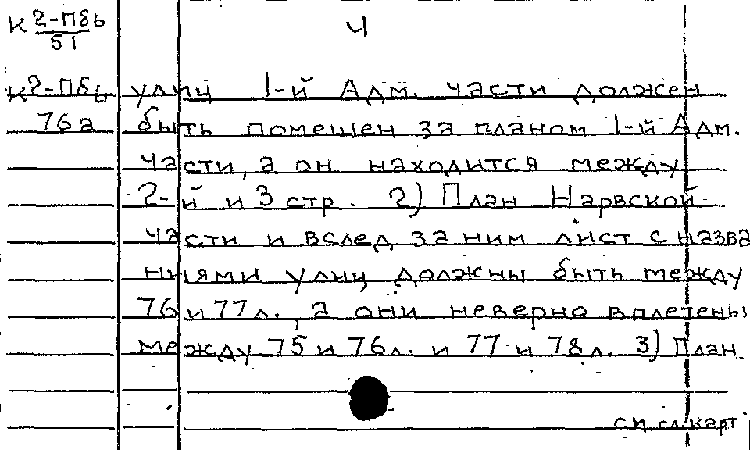 К 2-Пбь 4
51
К2-Пбь улиц 1-й Адм. части должен
76а быть помещен за планом 1-й Адм.
части, а он находится между
2-й и 3 стр. 2) План Нарвской
части и вслед за ним лист с назва
ниями улиц должны быть между
76 и 77 л., а они неверно вплетены
между 75 и 76 л. и 77 и 78 л. 3) План
см. сл. карт